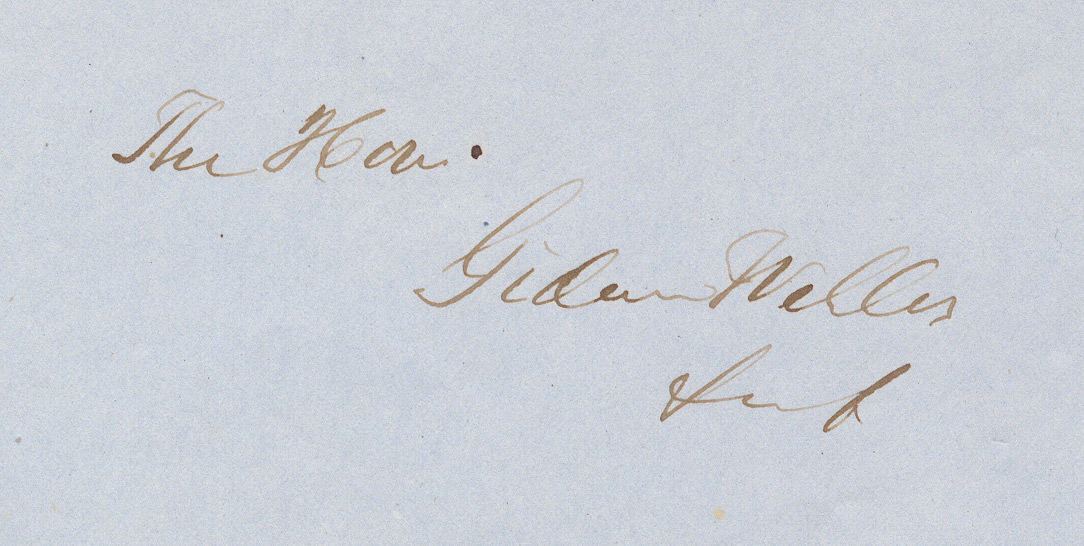 The Hon.
Gideon Welles